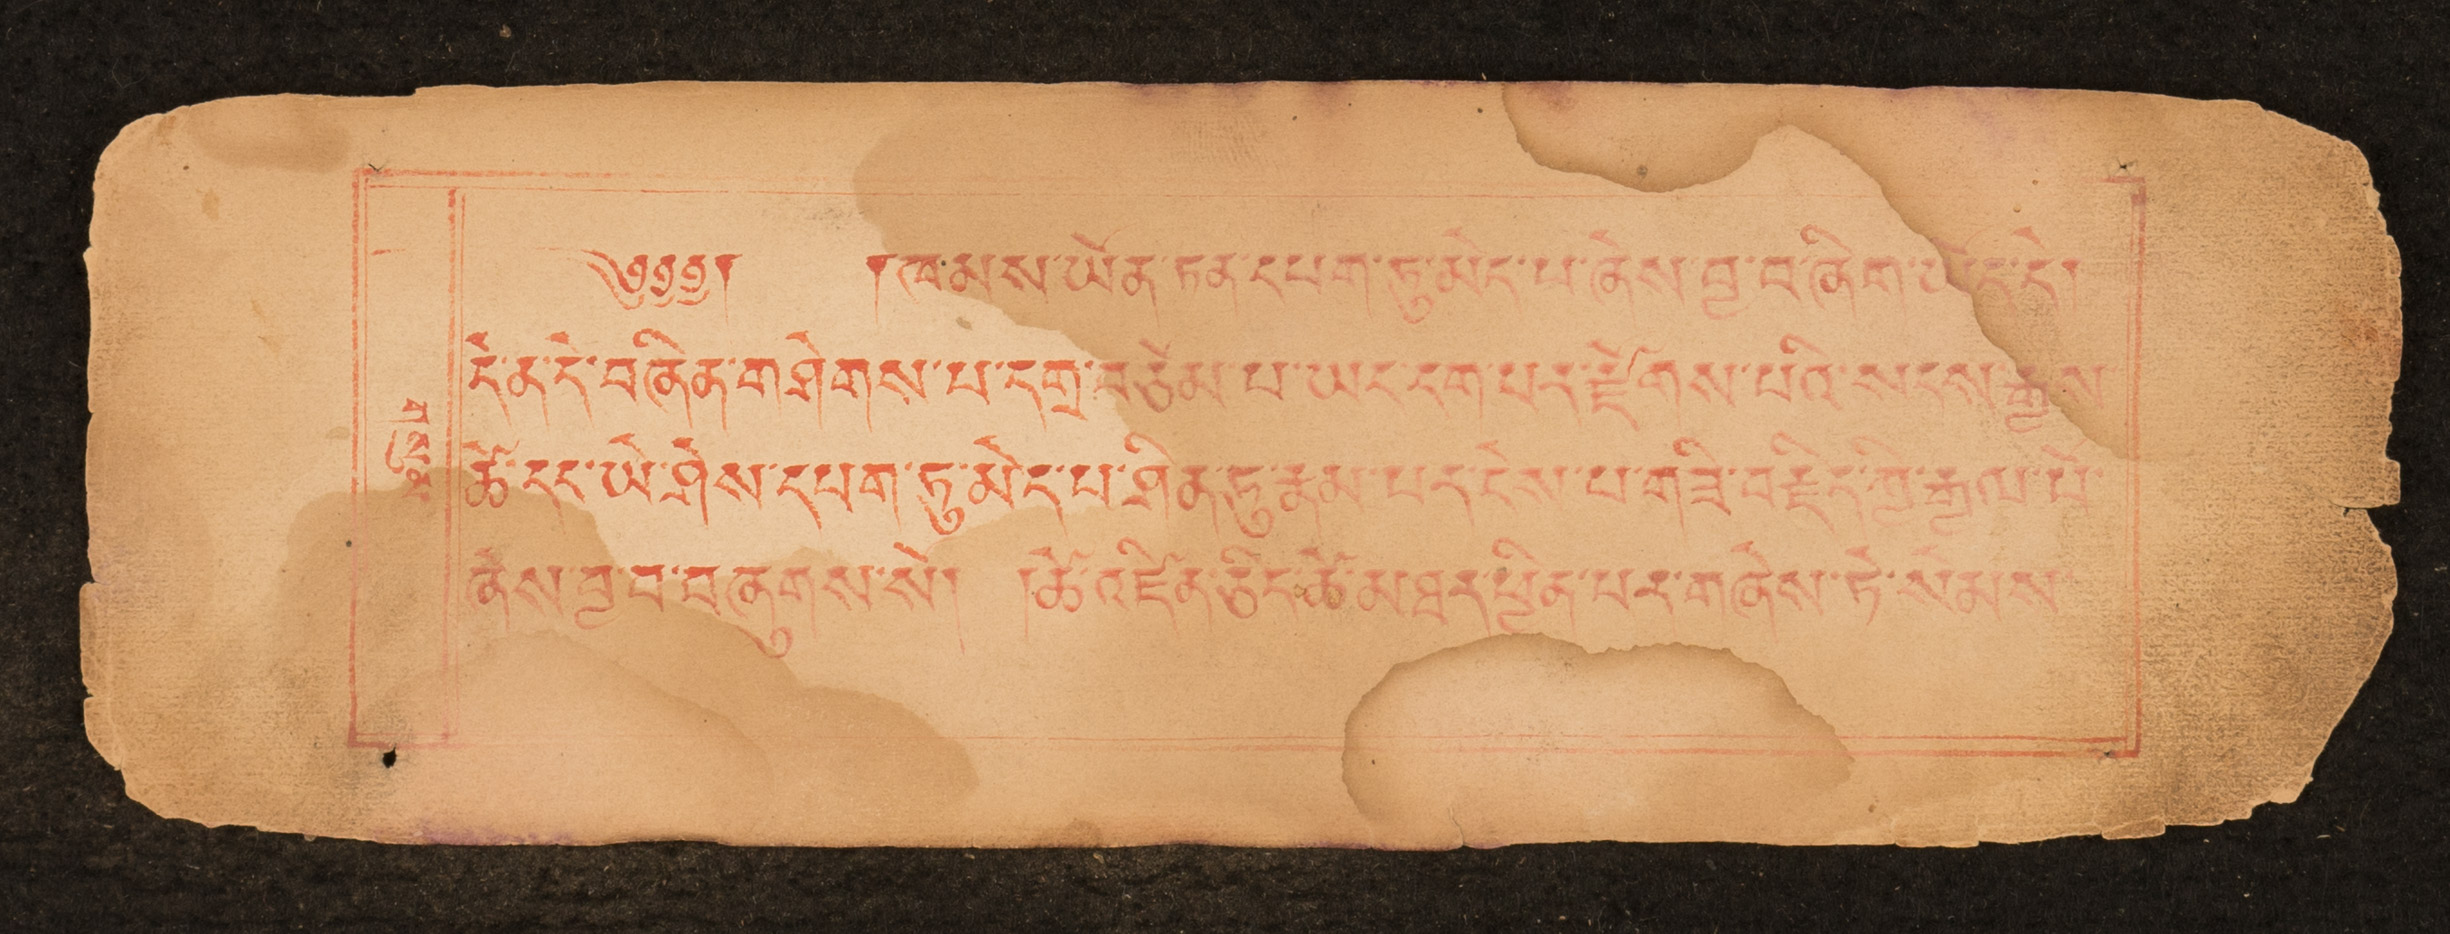 ༄༅༅། །ཁམས་ཡོན་ཏན་དཔག་ཏུ་མེད་པ་ཞེས་བྱ་བ་ཞིག་ཡོད་དེ།
དེ་ན་དེ་བཞིན་གཤེགས་པ་དགྲ་བཅོམ་པ་ཡང་དག་པར་རྫོགས་པའི་སངས་རྒྱས
ཚེ་དང་ཡེ་ཤེས་དཔག་ཏུ་མེད་པ་ཤིན་ཏུ་རྣམ་པར་ངེས་པ་གཟི་བརྗིད་ཀྱི་རྒྱལ་པོ་
ཞེས་བྱ་བ་བཞུགས་སོ། །ཚེ་འཛིན་ཅིང་ཚེ་མཐར་ཕྱིན་པར་གཞེས་ཏེ་སེམས